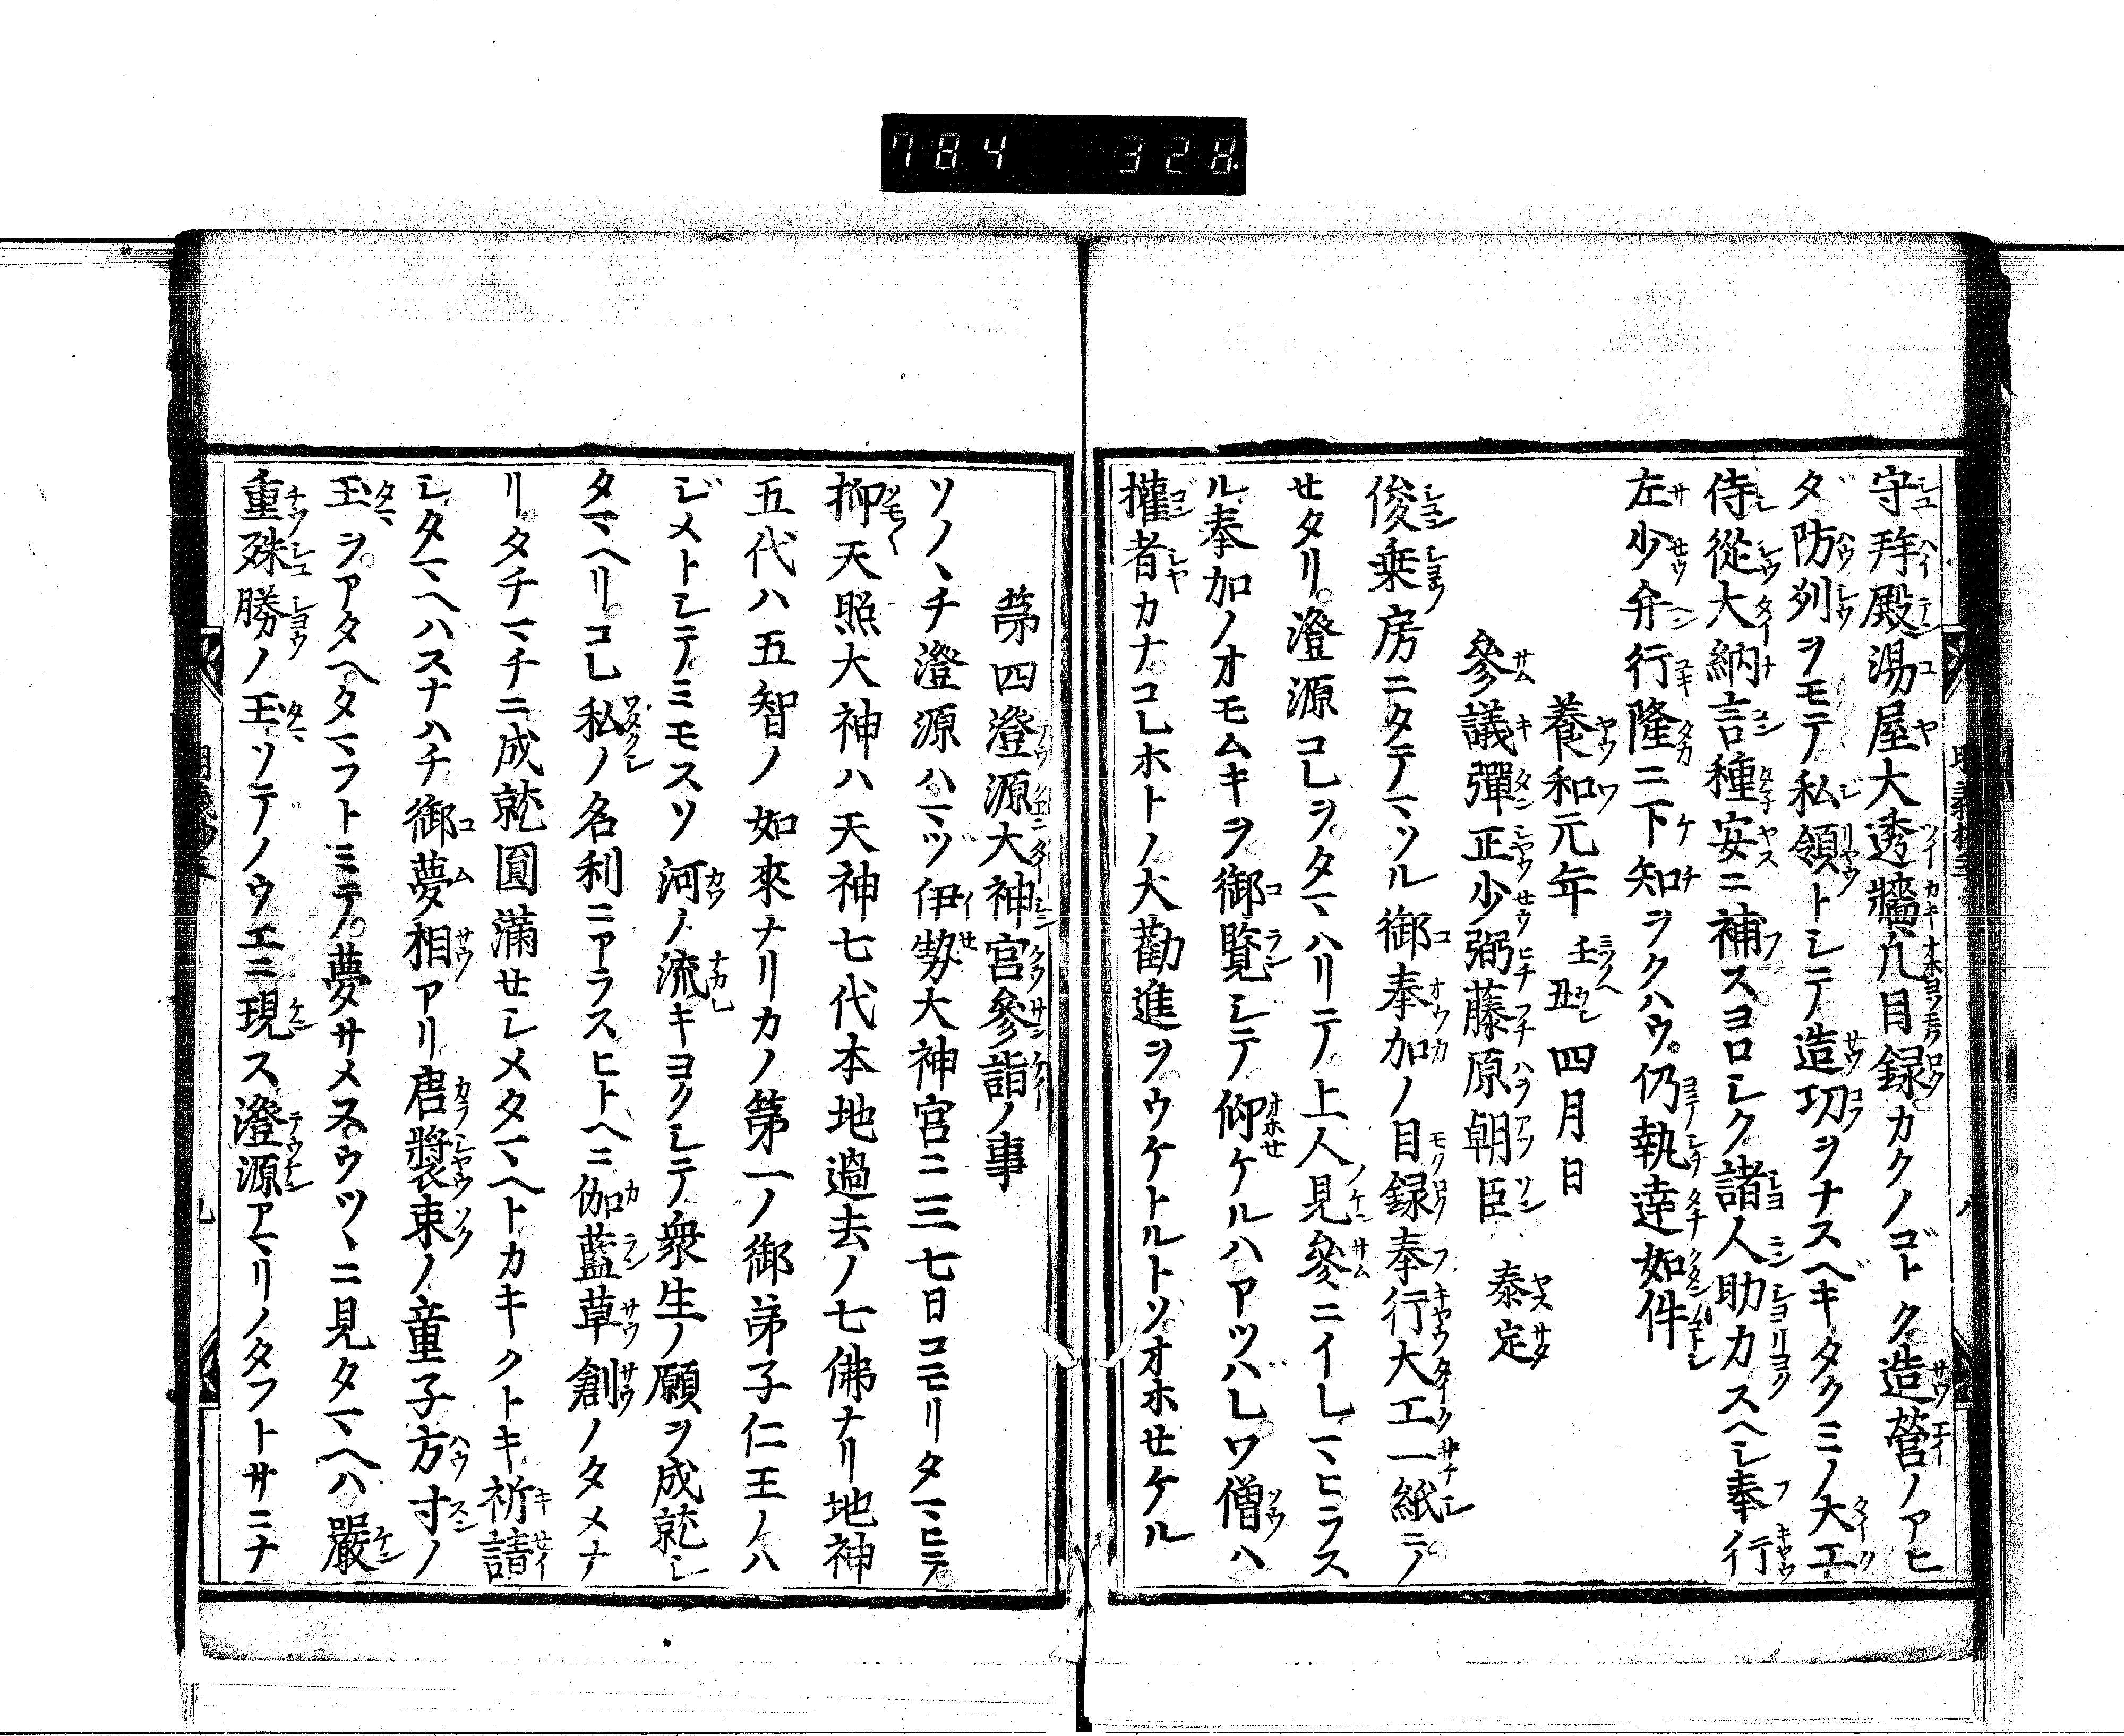 784 328
守拜殿湯屋大透牆凡目録カクノゴトク造營ノアヒ
タ防列ヲモテ私領トシテ造功ヲナスベキタクミノ大工
侍從大納言種安ニ補スヨロシク諸人助カスヘシ奉行
左少弁行隆ニ下知ヲクハウ仍執達如件
養和元年壬丑四月日
參議彈正少弼藤原朝臣 泰定
俊乗房ニタテマツル御奉加ノ目録奉行大工一紙ニノ
せタリ澄源コレヲタマハリテ上人見參ニイレマヒラス
ル奉加ノオモムキヲ御覽シテ仰ケルハアツバレワ僧ハ
權者カナコレホトノ大勸進ヲウケトルトソオホせケル
苐四澄源大神宮參詣ノ事
ソノヽチ澄源ハマヅ伊勢大神宮ニ三七日コモリタマヒテ
抑天照大神ハ天神七代本地過去ノ七佛ナリ地神
五代ハ五智ノ如來ナリカノ第一ノ御弟子仁王ノハ
ジメトシテノミモスソ河ノ流キヨクシテ衆生ノ願ヲ成就シ
タマヘリコレ私ノ名利ニアラスヒトヘニ伽藍草創ノタメナ
リタチマチニ成就圓滿せシメタマヘトカキクトキ祈請
シタマヘハスナハチ御夢相アリ唐裝束ノ童子方寸ノ
玉ヲアタヘタマフトミテ夢サメヌウツヽニ見タマヘハ嚴
重殊勝ノ玉ソテノウエニ現ス澄源アマリノタフトサニナ